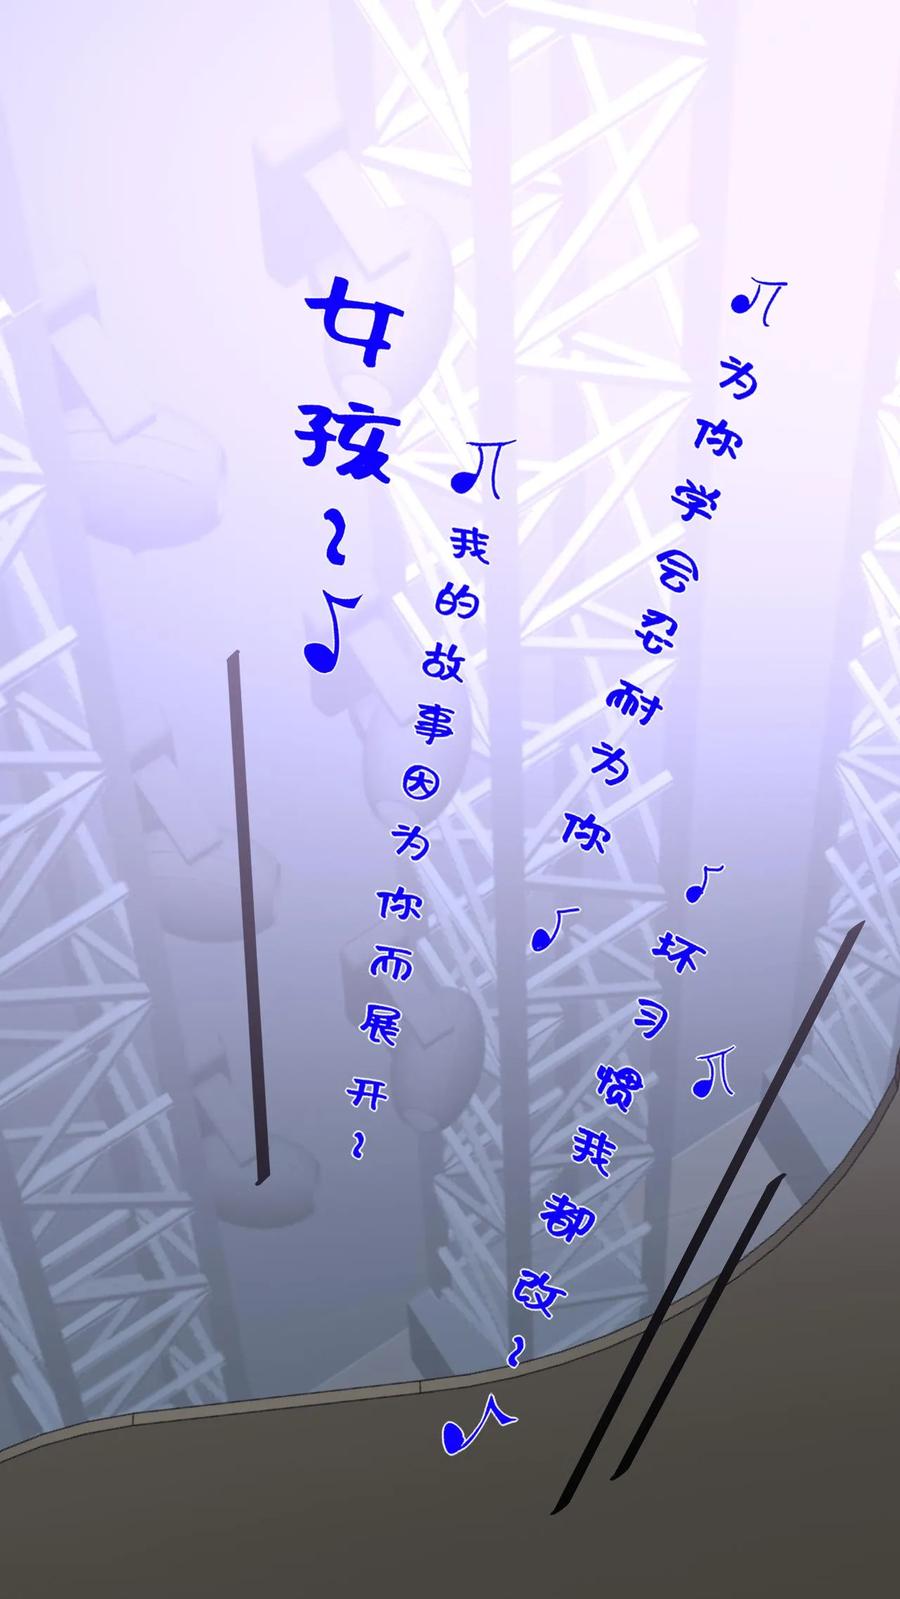 ♪为你学会忍耐为你♪
♪坏习惯我都改~♪
♪我的故事因为你而展开~
女孩~♪